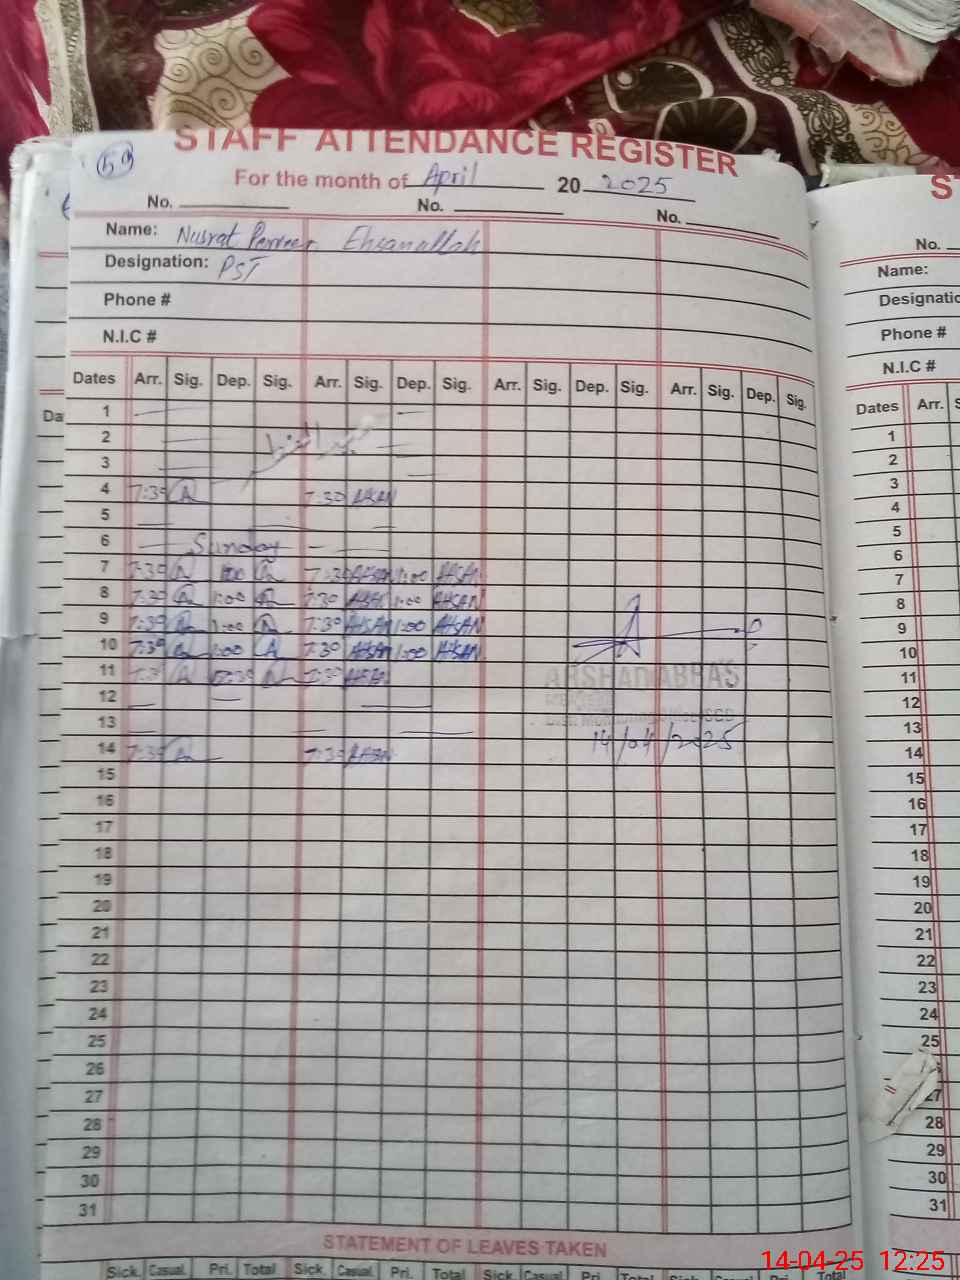 59
STAFF ATTENDANCE REGISTER
For the month of April 20 2025
No. No. No.
Name: Nusrat Parveen Ehsanullah
Designation: PST
Phone #
N.I.C #
Dates Arr. Sig. Dep. Sig. Arr. Sig. Dep. Sig. Arr. Sig. Dep. Sig. Arr. Sig. Dep. Sig.
1
2
3
4 7:30 7:30 AHSAN
5
6 Sunday
7 7:30 1:00 7:30 AHSAN 1:00 AHSAN
8 7:30 1:00 7:30 AHSAN 1:00 AHSAN
9 7:30 1:00 7:30 AHSAN 1:00 AHSAN
10 7:30 1:00 7:30 AHSAN 1:00 AHSAN
11 7:30 7:30 AHSAN
ARSHAD ABBAS
12
13
14 7:30 7:30 AHSAN
14/04/2025
15
16
17
18
19
20
21
22
23
24
25
26
27
28
29
30
31
STATEMENT OF LEAVES TAKEN
Sick. Casual. Pri. Total Sick. Casual. Pri. Total Sick. Casual. Pri. Total Sick. Casual. Pri. Total
S
No.
Name:
Designatio
Phone #
N.I.C #
Dates Arr. S
1
2
3
4
5
6
7
8
9
10
11
12
13
14
15
16
17
18
19
20
21
22
23
24
25
27
28
29
30
31
Da
14-04-25 12:25